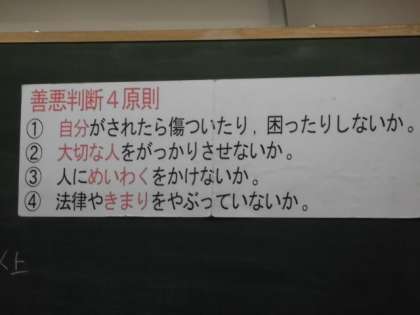 善悪判断4原則
① 自分がされたら傷ついたり，困ったりしないか。
② 大切な人をがっかりさせないか。
③ 人にめいわくをかけないか。
④ 法律やきまりをやぶっていないか。
上